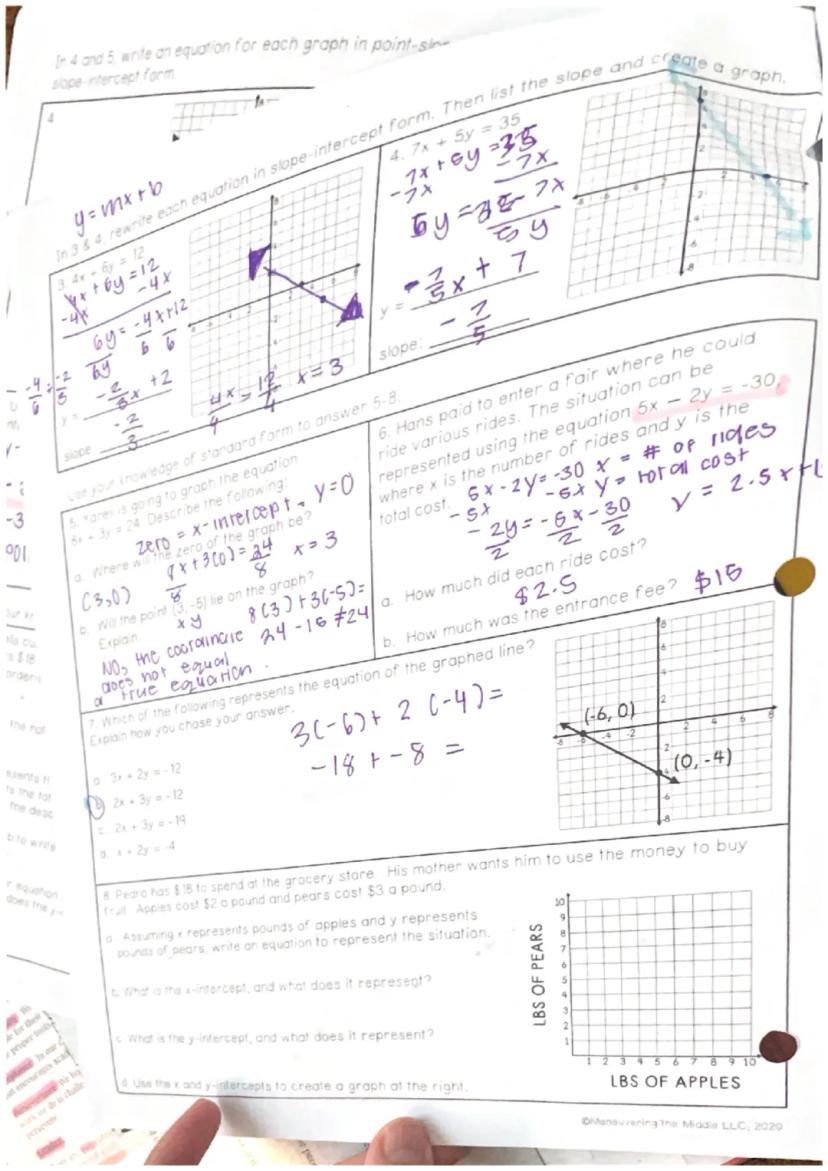 In 4 and 5, write an equation for each graph in point-slope
slope-intercept form.
4
y = mx + b
In 3 & 4, rewrite each equation in slope-intercept form. Then list the slope and create a graph.
3. 4x + 6y = 12
4x + 6y = 12
-4x -4x
6y = -4x + 12
6y 6 6
-4/6 = -2/3
y = -2/3x + 2
slope: -2/3
4x/4 = 12/4 x = 3
4. 7x + 5y = 35
7x + 5y = 35
-7x -7x
5y = 35 - 7x
5y
y = -7/5x + 7
slope: -7/5
Use your knowledge of standard form to answer 5-8.
5. Yareli is going to graph the equation
8x + 3y = 24. Describe the following:
zero = x-intercept, y=0
a. Where will the zero of the graph be?
8x + 3(0) = 24 x = 3
8 8
(3,0)
b. Will the point (3, -5) lie on the graph?
x y
Explain.
8(3) + 3(-5) =
24 - 15 ≠ 24
NO, the coordinate
does not equal
a true equation.
6. Hans paid to enter a fair where he could
ride various rides. The situation can be
represented using the equation 5x − 2y = -30,
where x is the number of rides and y is the
total cost.
x = # of rides
y = total cost
5x - 2y = -30
-5x -5x
-2y = -5x - 30
2 2 2
y = 2.5x + 1
a. How much did each ride cost?
$2.5
b. How much was the entrance fee? $15
7. Which of the following represents the equation of the graphed line?
Explain how you chose your answer.
3(-6) + 2(-4) =
-18 + -8 =
a. 3x + 2y = -12
b. 2x + 3y = -12
c. 2x + 3y = -19
d. x + 2y = -4
(-6, 0)
(0, -4)
8. Pedro has $18 to spend at the grocery store. His mother wants him to use the money to buy
fruit. Apples cost $2 a pound and pears cost $3 a pound.
a. Assuming x represents pounds of apples and y represents
pounds of pears, write an equation to represent the situation.
b. What is the x-intercept, and what does it represent?
c. What is the y-intercept, and what does it represent?
d. Use the x and y-intercepts to create a graph at the right.
LBS OF PEARS
10
9
8
7
6
5
4
3
2
1
1 2 3 4 5 6 7 8 9 10
LBS OF APPLES
©Maneuvering The Middle LLC, 2020